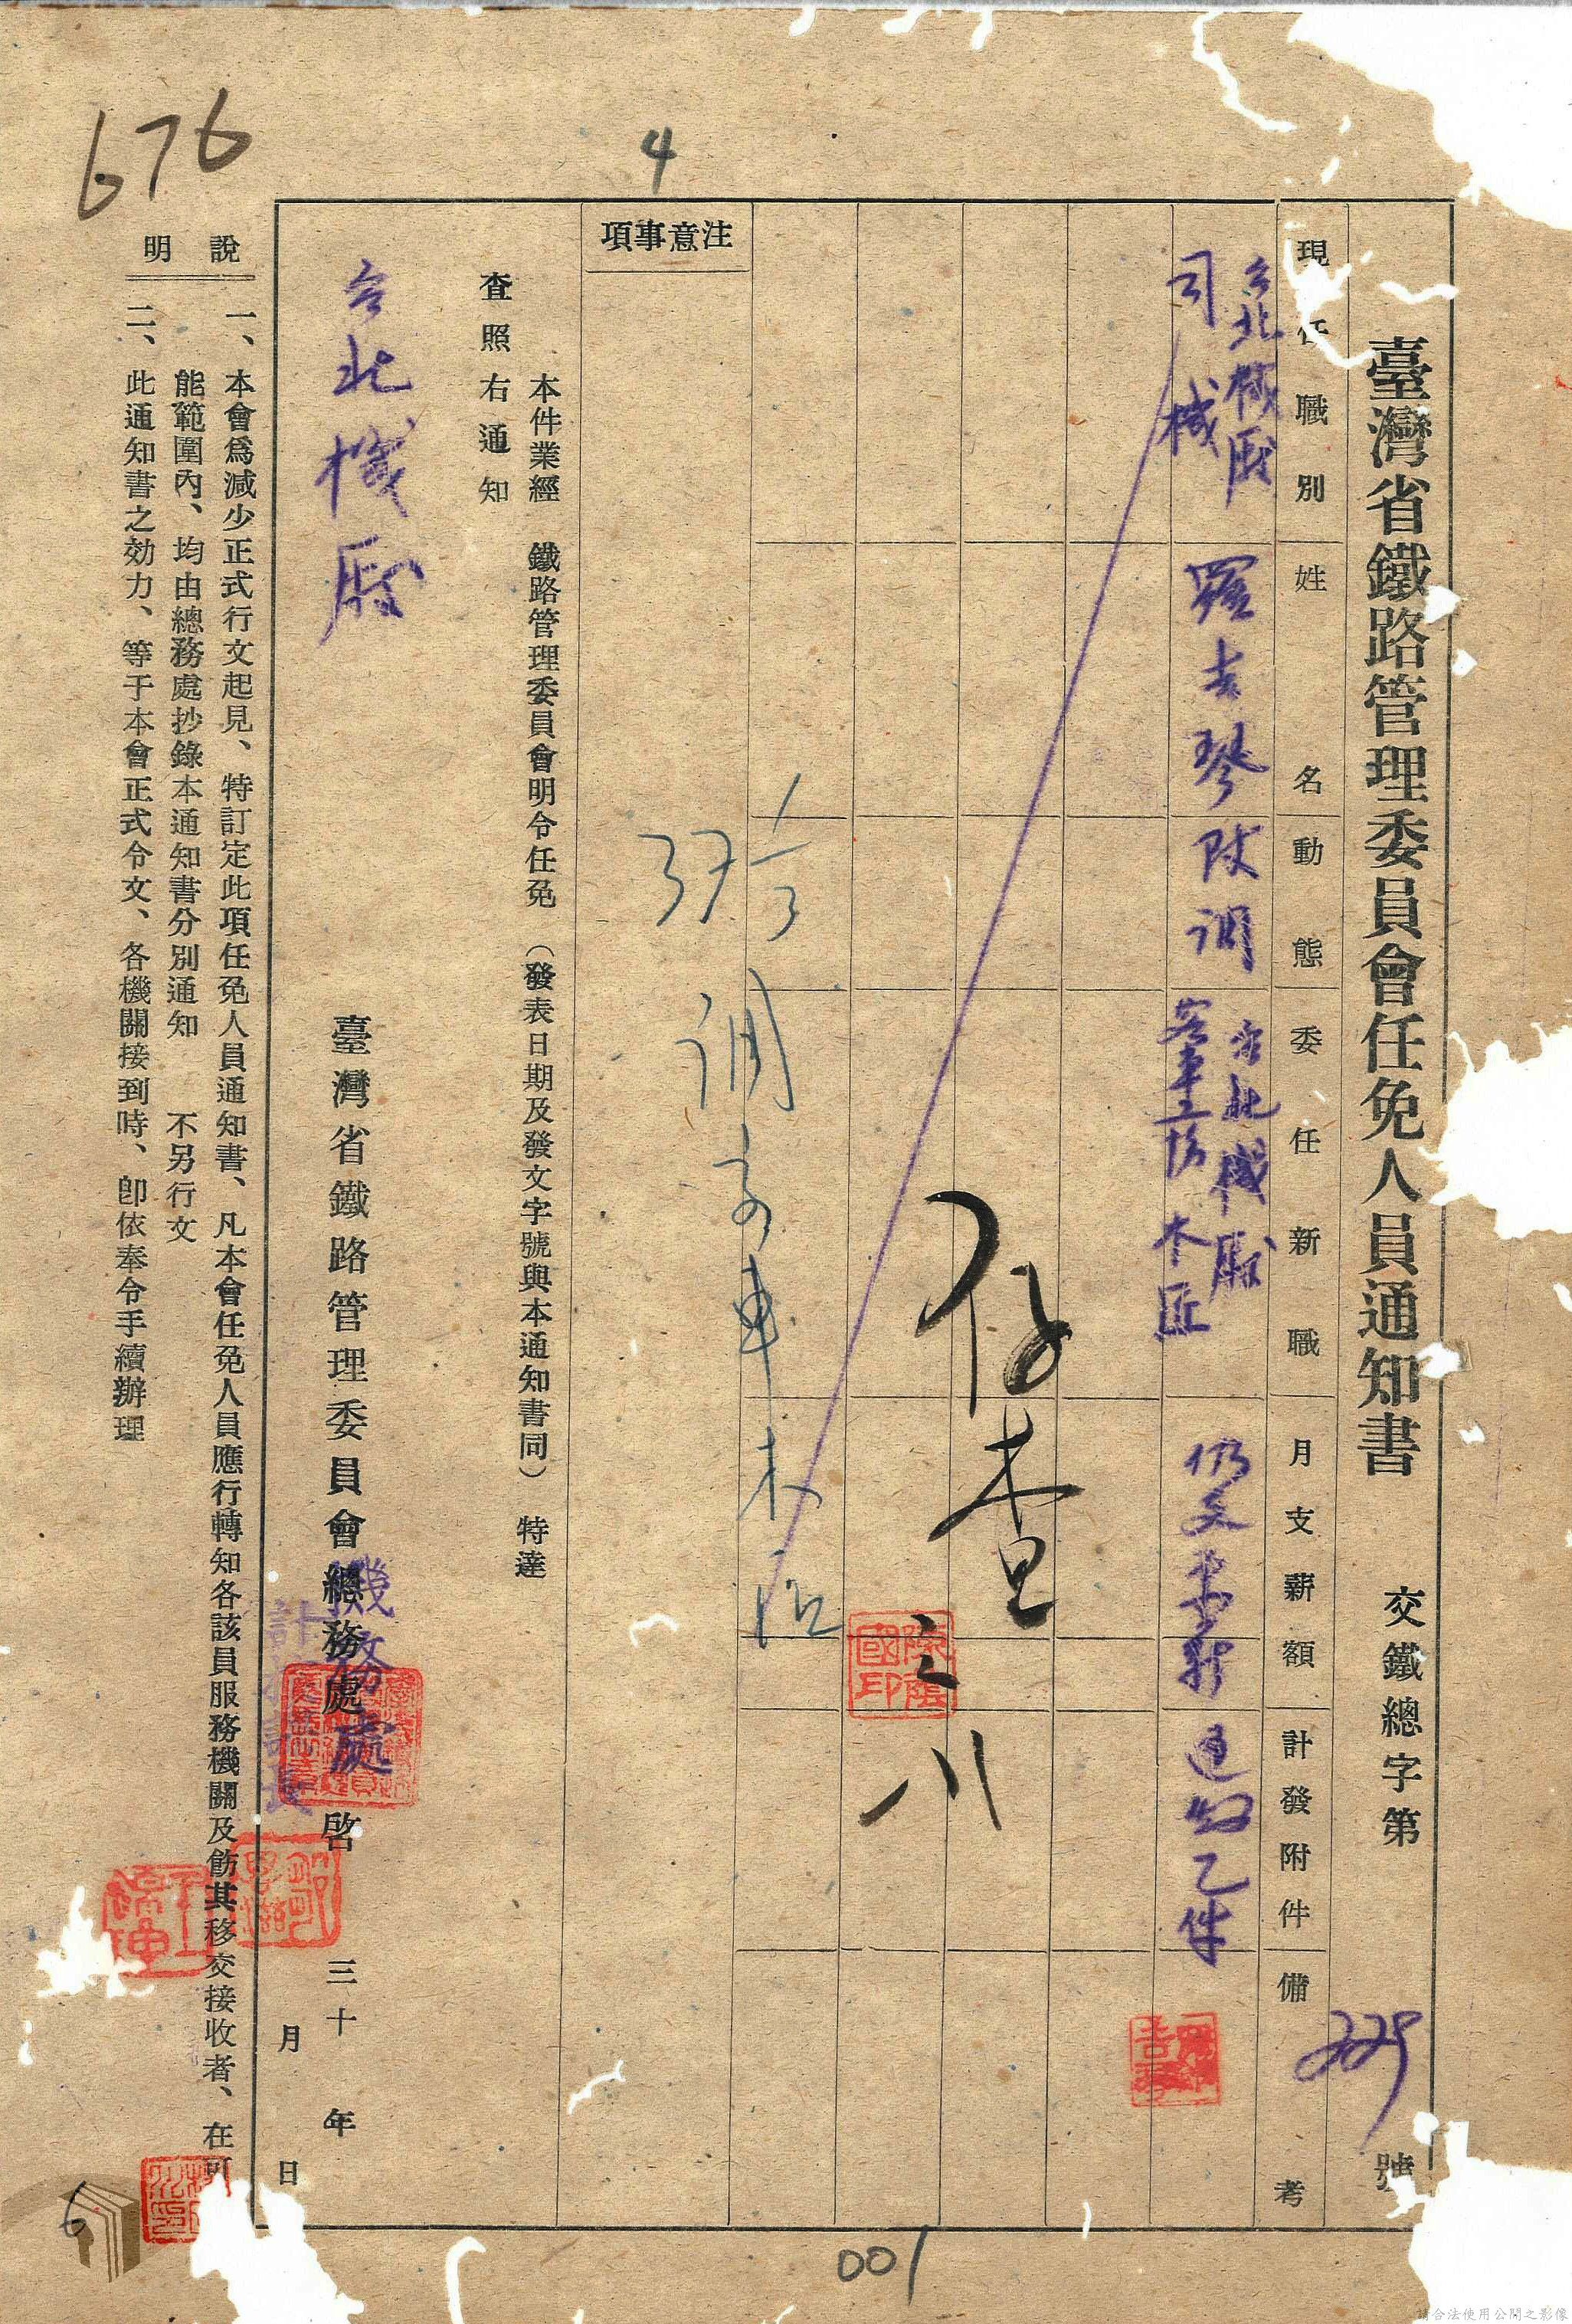 臺灣省鐵路管理委員會任免人員通知書 交鐵總字第 號
現任職別 姓名 動態 委任新職 月支薪額 計發附件 備考
台北機廠
司機
羅吉琴
調
台北機廠
客車工場 木匠
仍支原薪
通知乙件
存查
注意事項
37 1/3 調客車木工
本件業經 鐵路管理委員會明令任免 (發表日期及發文字號與本通知書同) 特達
查照右通知
台北機廠
臺灣省鐵路管理委員會總務處 啓 三十 年
機務處
月 日
說明
一、本會爲減少正式行文起見、特訂定此項任免人員通知書、凡本會任免人員應行轉知各該員服務機關及飭其移交接收者、在可
能範圍內、均由總務處抄錄本通知書分別通知 不另行文
二、此通知書之効力、等于本會正式令文、各機關接到時、卽依奉令手續辦理
676
4
001
6
請合法使用公開之影像